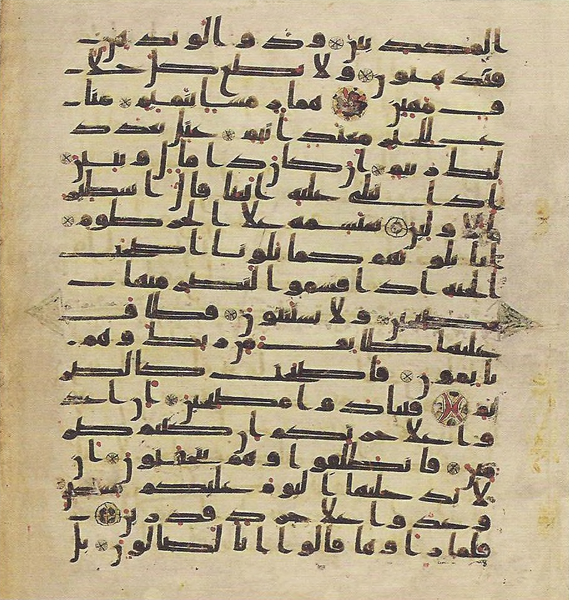 المكذبين ودوا لو تدهن
فيدهنون ولا تطع كل حلا
ف مهين هماز مشا بنميم منا
ع للخير معتد اثيم عتل بعد ذ
لك زنيم ان كان ذا مال وبنين
اذا تتلى عليه ايتنا قال اسطير
الاولين سنسمه على الخرطوم
انا بلونهم كما بلونا اصحب
الجنه اذ اقسموا ليصرمنها
مصبحين ولا يستثنون فطاف
عليها طايف من ربك وهم
نايمون فاصبحت كالصر
يم فتنادوا مصبحين ان اغد
وا على حرثكم ان كنتم صر
مين فانطلقوا وهم يتخفتون ان
لا يدخلنها اليوم عليكم مسكين
وغدوا على حرد قدرين
فلما راوها قالوا انا لضالون بل